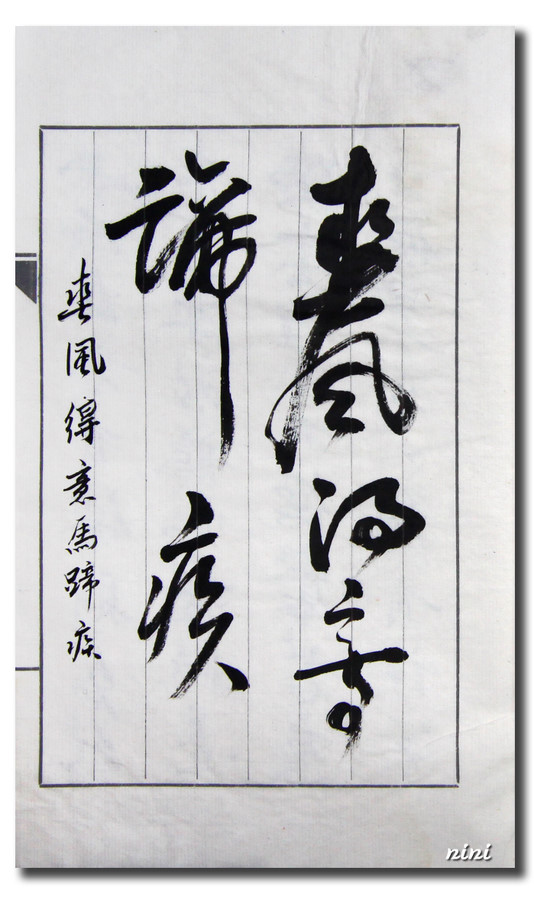 春風得意
蹄疾
春風得意馬蹄疾
nini